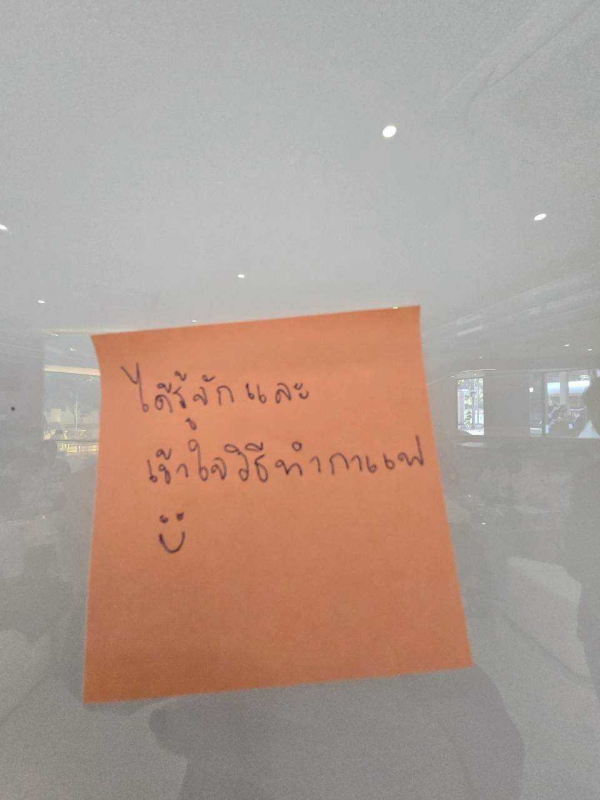 ได้รู้จักและ
เข้าใจวิธีทำกาแฟ